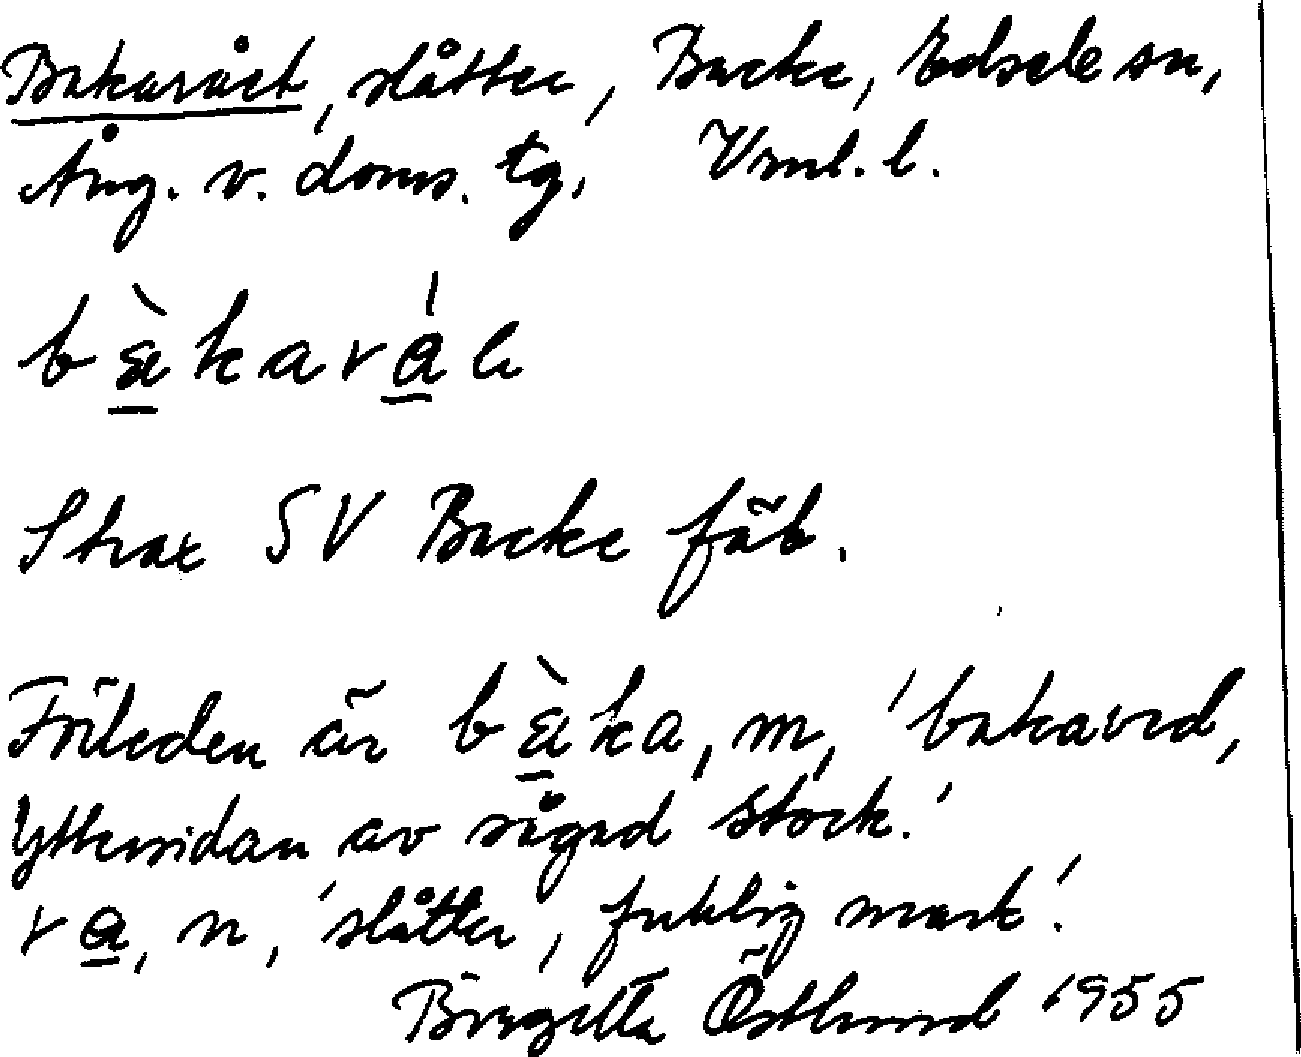 Bakarået, slåtter, Backe, Edsele sn,
Ång. v. doms. tg. Vrml. l.
Strax SV Backe fäb.
Förleden är bὰka, m, 'bakaved,
Yttersidan av sågad stock.'
ra, n, 'slåtter, fuktig mark'.
Birgitta Östlund 1955